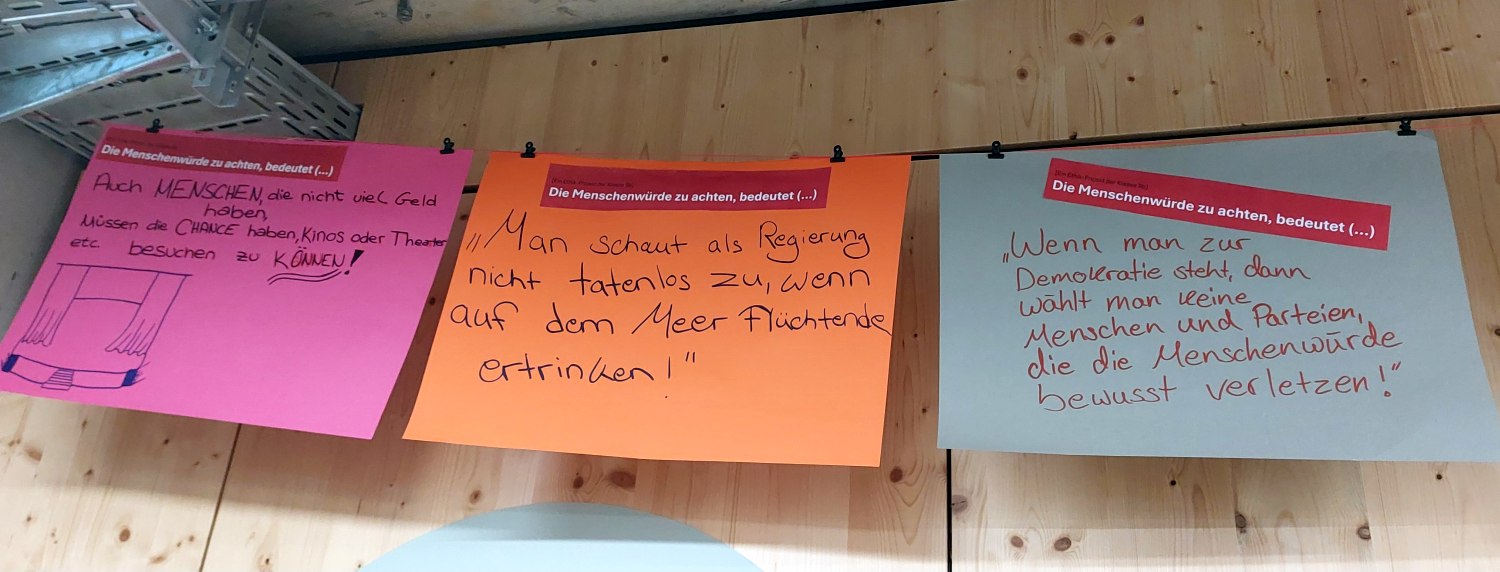 Die Menschenwürde zu achten, bedeutet (...)
Auch MENSCHEN, die nicht viel Geld
haben,
Müssen die CHANCE haben, Kinos oder Theater
etc. besuchen zu KÖNNEN!
Die Menschenwürde zu achten, bedeutet (...)
„Man schaut als Regierung
nicht tatenlos zu, wenn
auf dem Meer Flüchtende
ertrinken!"
Die Menschenwürde zu achten, bedeutet (...)
„Wenn man zur
Demokratie steht, dann
wählt man keine
Menschen und Parteien,
die die Menschenwürde
bewusst verletzen!"